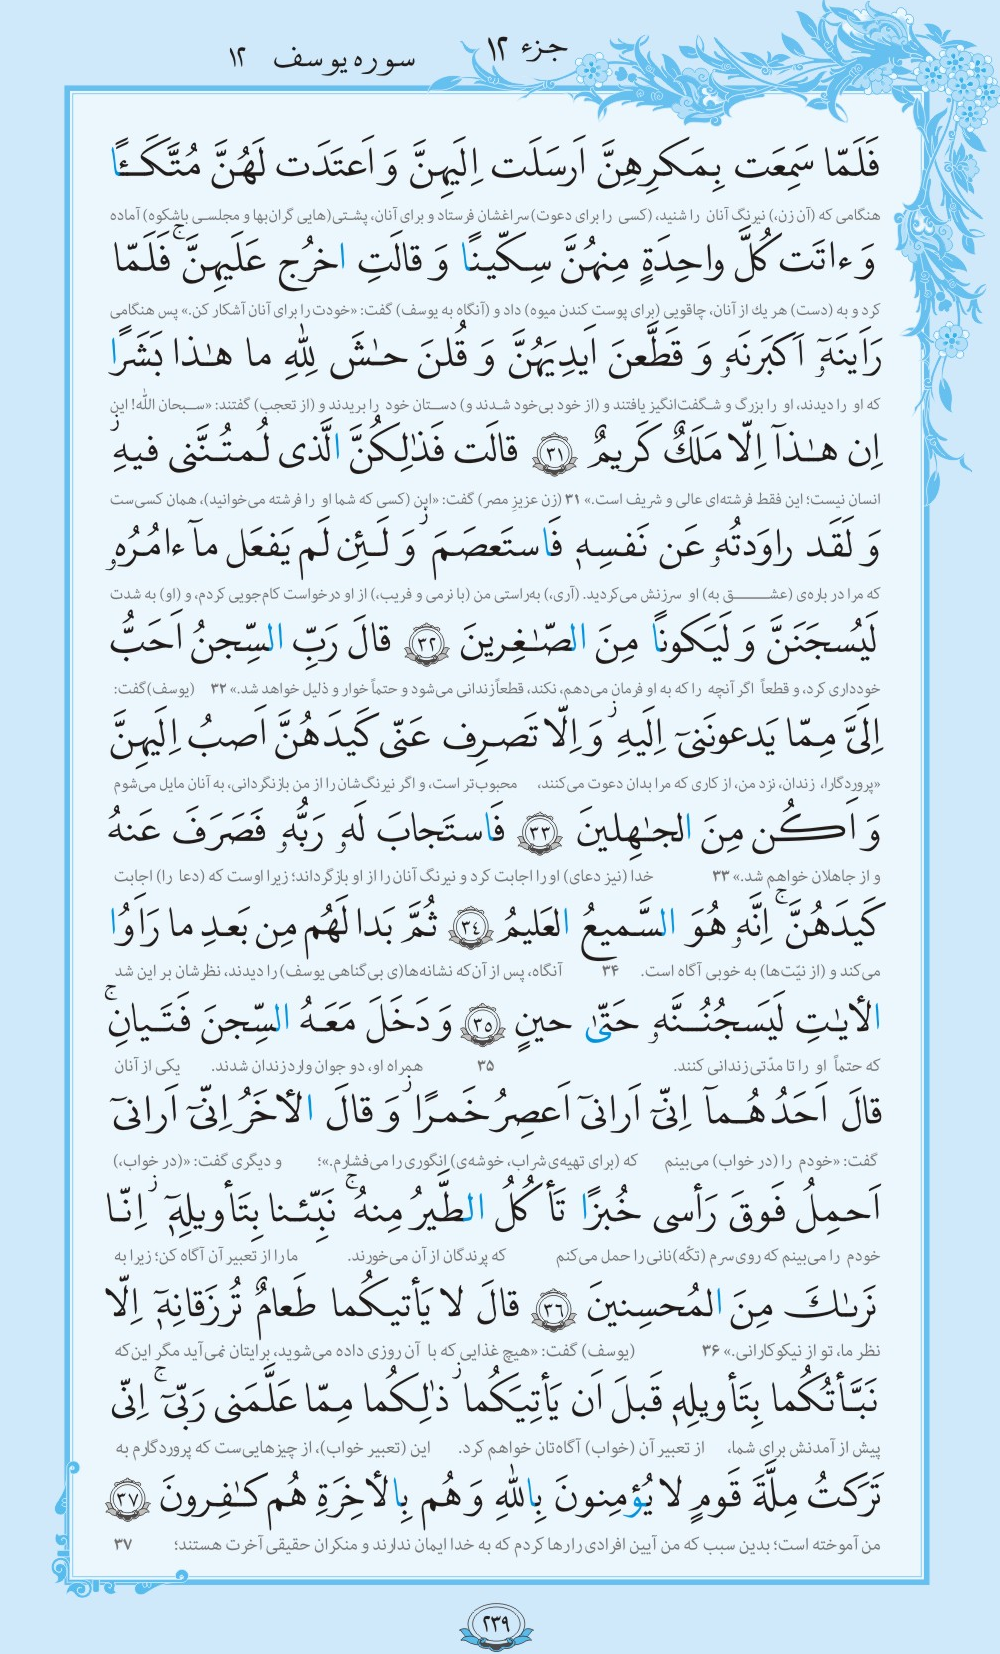 جزء ۱۲
سوره یوسف ۱۲
فَلَمّا سَمِعَت بِمَكرِهِنَّ اَرسَلَت اِلَیهِنَّ وَ اَعتَدَت لَهُنَّ مُتَّكَـًٔا
هنگامی که (آن زن،) نیرنگ آنان را شنید، (کسی را برای دعوت) سراغشان فرستاد و برای آنان، پشتی(هایی گران‌بها و مجلسی باشکوه) آماده
وَ ءاتَت كُلَّ واحِدَةٍ مِنهُنَّ سِكّینًا وَ قالَتِ اخرُج عَلَیهِنَّ ۚ فَلَمّا
کرد و به (دست) هر یك از آنان، چاقویی (برای پوست کندن میوه) داد و (آنگاه به یوسف) گفت: «خودت را برای آنان آشکار کن.» پس هنگامی
رَاَینَهٗٓ اَكبَرنَهٗ وَ قَطَّعنَ اَیدِیَهُنَّ وَ قُلنَ حـٰشَ لِلّٰهِ ما هـٰذا بَشَرًا
که او را دیدند، او را بزرگ و شگفت‌انگیز یافتند و (از خود بی‌خود شدند و) دستان خود را بریدند و (از تعجب) گفتند: «سبحان الله! این
اِن هـٰذآ اِلّا مَلَكٌ كَریمٌ ﴿٣١﴾ قالَت فَذٰلِكُنَّ الَّذی لُمتُنَّنی فیهِ ۖ
انسان نیست؛ این فقط فرشته‌ای عالی و شریف است.» ۳۱ (زن عزیزِ مصر) گفت: «این (کسی که شما او را فرشته می‌خوانید)، همان کسی‌ست
وَ لَقَد راوَدتُهٗ عَن نَفسِهٖ فَاستَعصَمَ ۖ وَ لَـئِن لَم یَفعَل مآ ءامُرُهٗ
که مرا در باره‌ی (عشــق به) او سرزنش می‌کردید. (آری،) به‌راستی من (با نرمی و فریب،) از او درخواست کام‌جویی کردم، و (او) به شدت
لَیُسجَنَنَّ وَ لَیَكونًا مِنَ الصّـٰغِرینَ ﴿٣٢﴾ قالَ رَبِّ السِّجنُ اَحَبُّ
خودداری کرد، و قطعاً اگر آنچه را که به او فرمان می‌دهم، نکند، قطعاً زندانی می‌شود و حتماً خوار و ذلیل خواهد شد.» ۳۲ (یوسف) گفت:
اِلَیَّ مِمّا یَدعونَنیٓ اِلَیهِ ۖ وَ اِلّا تَصرِف عَنّی كَیدَهُنَّ اَصبُ اِلَیهِنَّ
«پروردگارا، زندان، نزد من، از کاری که مرا بدان دعوت می‌کنند، محبوب‌تر است، و اگر نیرنگ‌شان را از من بازنگردانی، به آنان مایل می‌شوم
وَ اَكُن مِنَ الجـٰهِلینَ ﴿٣٣﴾ فَاستَجابَ لَهٗ رَبُّهٗ فَصَرَفَ عَنهُ
و از جاهلان خواهم شد.» ۳۳ خدا (نیز دعای) او را اجابت کرد و نیرنگ آنان را از او بازگرداند؛ زیرا اوست که (دعا را) اجابت
كَیدَهُنَّ ۚ اِنَّهٗ هُوَ السَّمیعُ العَلیمُ ﴿٣٤﴾ ثُمَّ بَدا لَهُم مِن بَعدِ ما رَاَوُا
می‌کند و (از نیّت‌ها) به خوبی آگاه است. ۳۴ آنگاه، پس از آن‌که نشانه‌ها(ی بی‌گناهی یوسف) را دیدند، نظرشان بر این شد
الأیـٰتِ لَیَسجُنُنَّهٗ حَتّىٰ حینٍ ﴿٣٥﴾ وَ دَخَلَ مَعَهُ السِّجنَ فَتَیانِ ۚ
که حتماً او را تا مدّتی زندانی کنند. ۳۵ همراه او، دو جوان وارد زندان شدند. یکی از آنان
قالَ اَحَدُهُمآ اِنّیٓ اَرانیٓ اَعصِرُ خَمرًا ۖ وَ قالَ الأخَرُ اِنّیٓ اَرانیٓ
گفت: «خودم را (در خواب) می‌بینم که (برای تهیه‌ی شراب، خوشه‌ی) انگوری را می‌فشارم.»؛ و دیگری گفت: «(در خواب،)
اَحمِلُ فَوقَ رَأسی خُبزًا تَأكُلُ الطَّیرُ مِنهُ ۚ نَبِّئنا بِتَأویلِهٖٓ ۖ اِنّا
خودم را می‌بینم که روی سرم (تکّه) نانی را حمل می‌کنم که پرندگان از آن می‌خورند. ما را از تعبیر آن آگاه کن؛ زیرا به
نَرىٰكَ مِنَ المُحسِنینَ ﴿٣٦﴾ قالَ لا یَأتیكُما طَعامٌ تُرزَقانِهٖٓ اِلّا
نظر ما، تو از نیکوکارانی.» ۳۶ (یوسف) گفت: «هیچ غذایی که با آن روزی داده می‌شوید، برایتان نمی‌آید مگر این‌که
نَبَّأتُكُما بِتَأویلِهٖ قَبلَ اَن یَأتِیَكُما ۖ ذٰلِكُما مِمّا عَلَّمَنی رَبّیٓ ۚ اِنّی
پیش از آمدنش برای شما، از تعبیر آن (خواب) آگاه‌تان خواهم کرد. این (تعبیر خواب)، از چیزهایی‌ست که پروردگارم به
تَرَكتُ مِلَّةَ قَومٍ لا یُؤمِنونَ بِاللّٰهِ وَ هُم بِالأخِرَةِ هُم كـٰفِرونَ ﴿٣٧﴾
من آموخته است؛ بدین سبب که من آیین افرادی را رها کردم که به خدا ایمان ندارند و منکران حقیقی آخرت هستند؛ ۳۷
۲۳۹